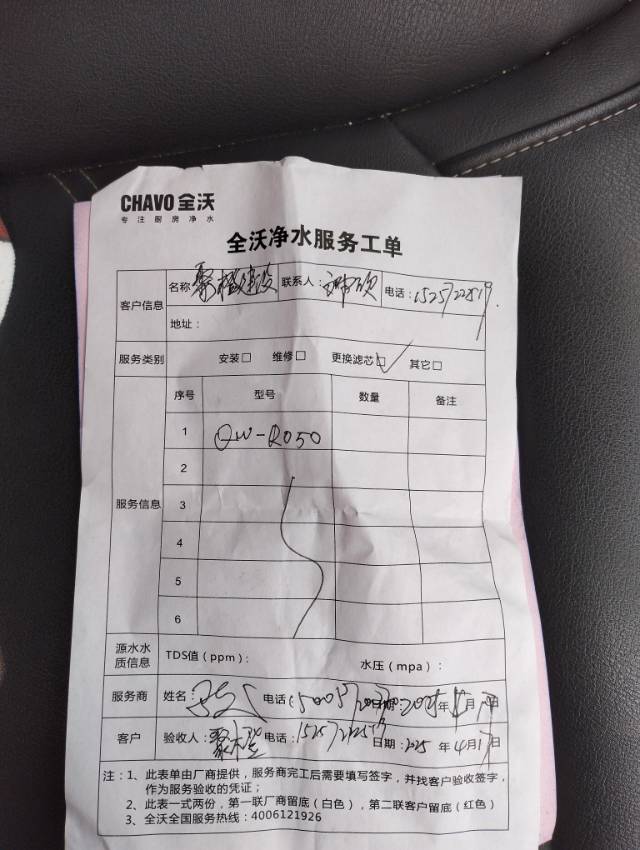 CHAVO全沃
专注厨房净水
全沃净水服务工单
客户信息
名称 建设 联系人： 电话：
地址：
服务类别 安装□ 维修□ 更换滤芯□✓ 其它□
服务信息
序号 型号 数量 备注
1 QW-RO50
2
3
4
5
6
源水水质信息 TDS值（ppm）： 水压（mpa）：
服务商 姓名： 电话 日期：2025年4月17日
客户 验收人： 电话： 日期：2025年4月17日
注：1、此表单由厂商提供，服务商完工后需要填写签字，并找客户验收签字，
作为服务验收的凭证；
2、此表一式两份，第一联厂商留底（白色），第二联客户留底（红色）
3、全沃全国服务热线：4006121926